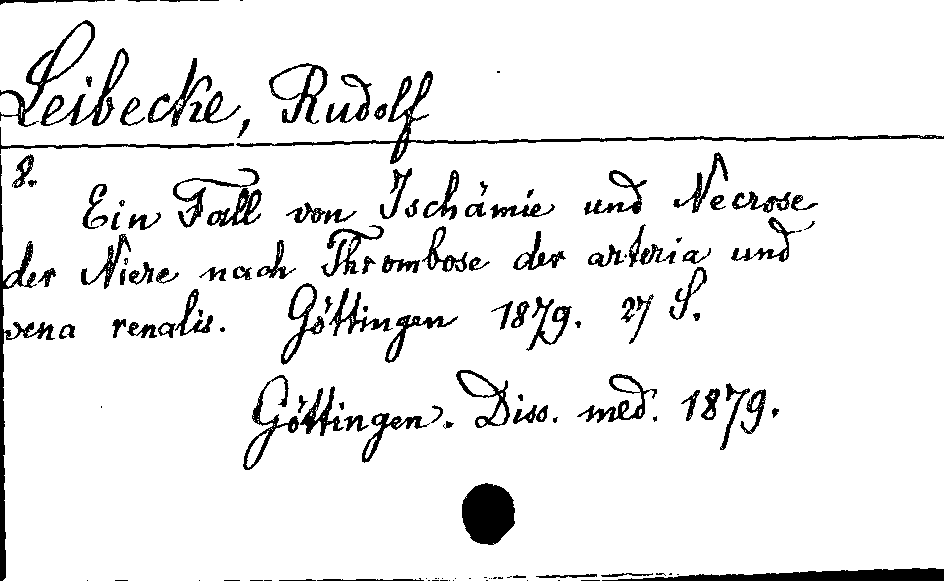 Leibecke, Rudolf
8.
Ein Fall von Ischämie und Necrose
der Niere nach Thrombose der arteria und
vena renalis. Göttingen 1879. 27 S.
Göttingen. Diss. med. 1879.